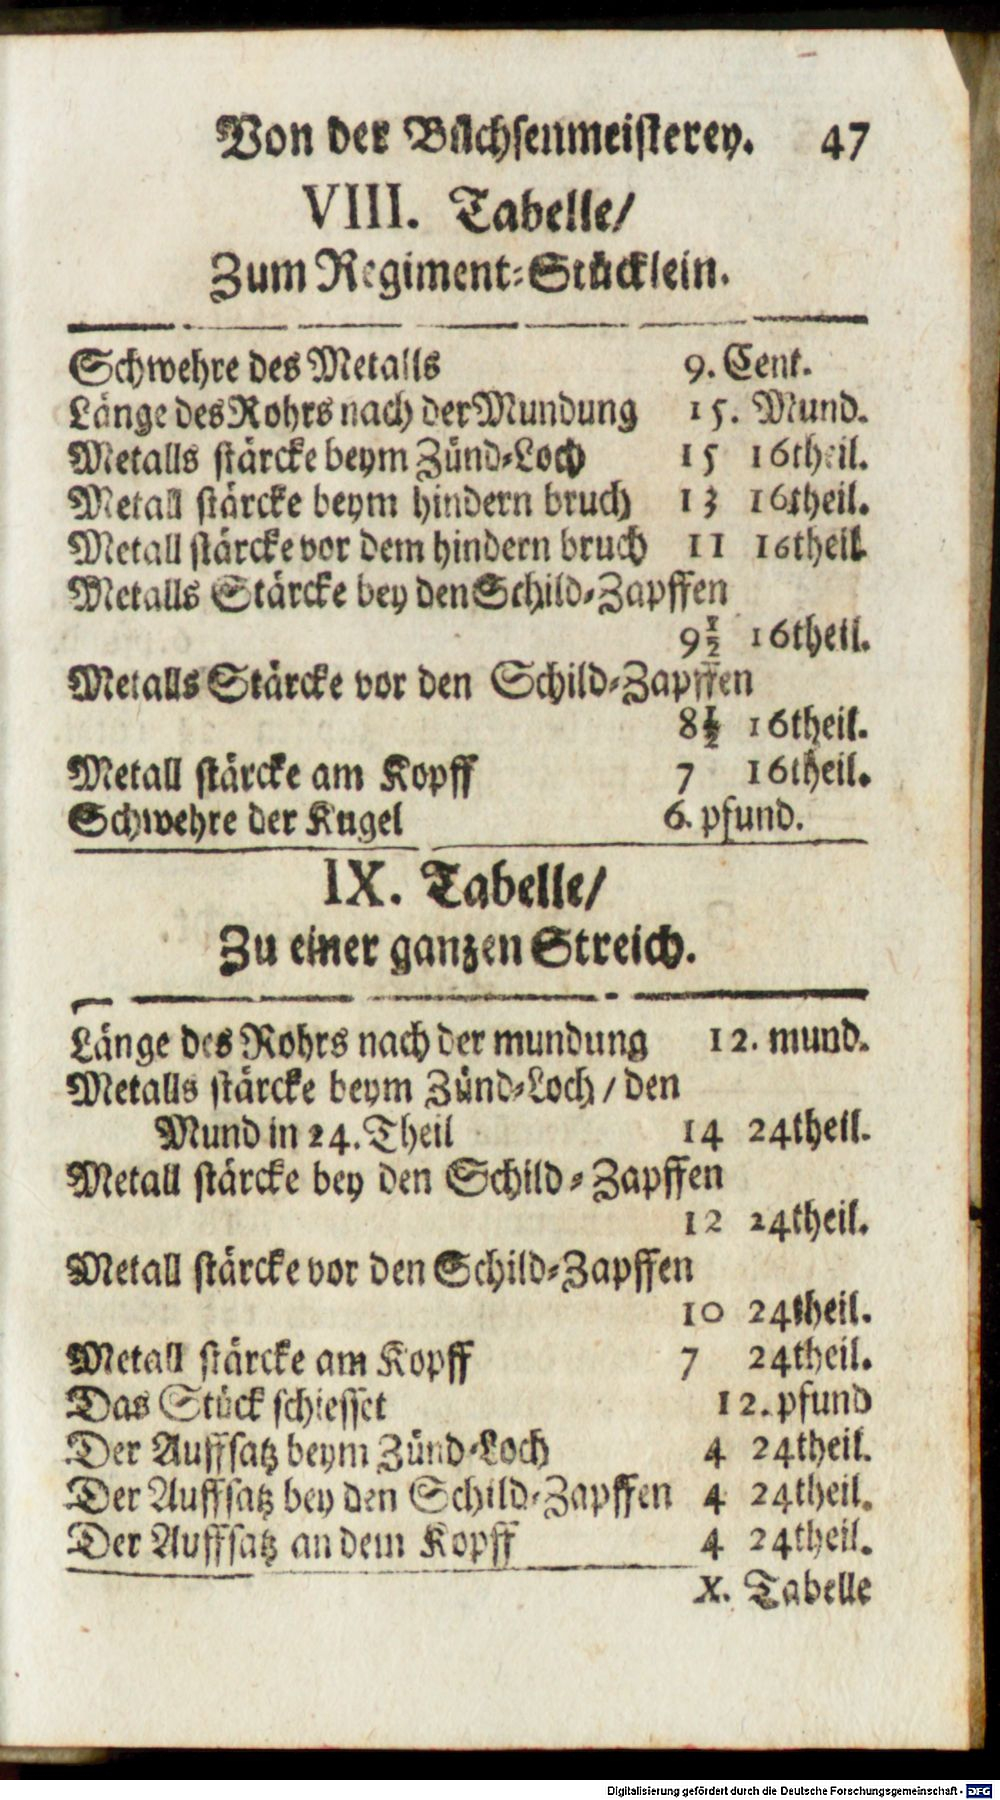 Von der Büchsenmeisterey. 47
VIII. Tabelle/
Zum Regiment-Stücklein.
Schwehre des Metalls 9. Cent.
Länge des Rohrs nach der Mundung 15. Mund.
Metalls stärcke beym Zünd-Loch 15 16theil.
Metall stärcke beym hindern bruch 13 16theil.
Metall stärcke vor dem hindern bruch 11 16theil.
Metalls Stärcke bey den Schild-Zapffen
9½ 16theil.
Metalls Stärcke vor den Schild-Zapffen
8½ 16theil.
Metall stärcke am Kopff 7 16theil.
Schwehre der Kugel 6. pfund.
IX. Tabelle/
Zu einer ganzen Streich.
Länge des Rohrs nach der mundung 12. mund.
Metalls stärcke beym Zünd-Loch / den
Mund in 24. Theil 14 24theil.
Metall stärcke bey den Schild-Zapffen
12 24theil.
Metall stärcke vor den Schild-Zapffen
10 24theil.
Metall stärcke am Kopff 7 24theil.
Das Stück schiesset 12. pfund
Der Auffsatz beym Zünd-Loch 4 24theil.
Der Auffsatz bey den Schild-Zapffen 4 24theil.
Der Auffsatz an dem Kopff 4 24theil.
X. Tabelle
Digitalisierung gefördert durch die Deutsche Forschungsgemeinschaft - DFG